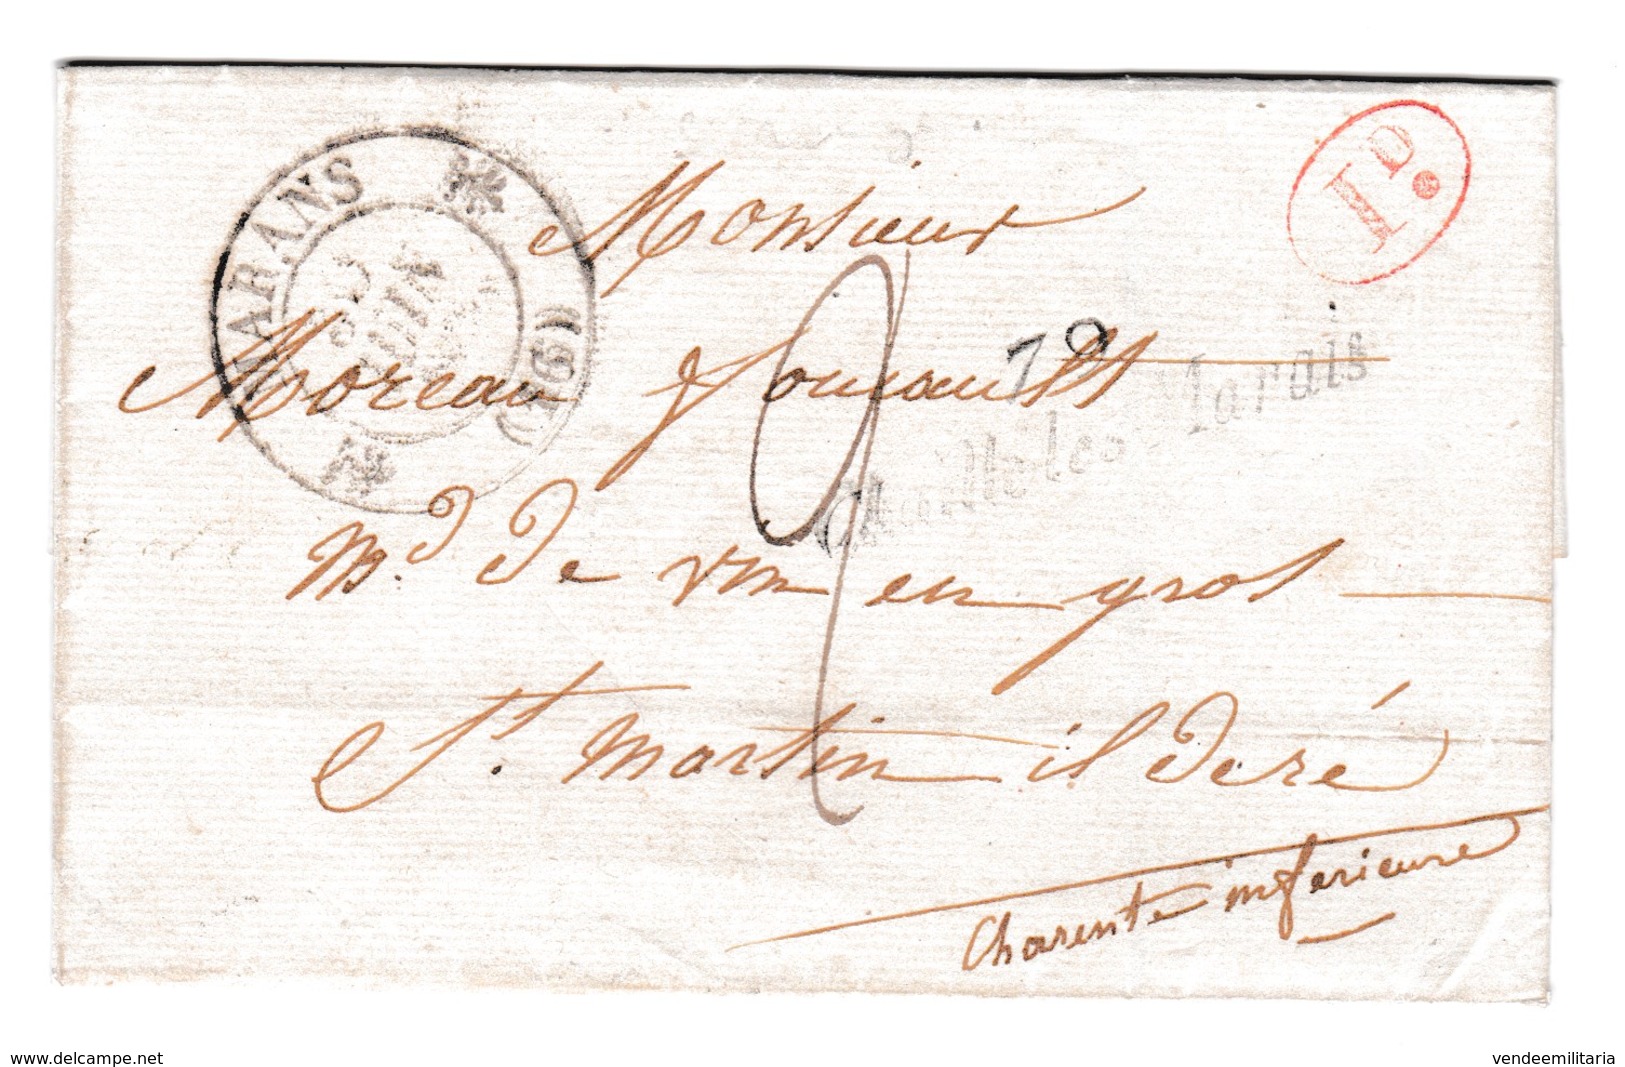 1D.
MARANS (16)
JUIN
Monsieur
79
Chaillé les Marais
Moreau foucault
2
M.d de vin en gros
St. martin il de ré
Charente inferieure
www.delcampe.net
vendeemilitaria